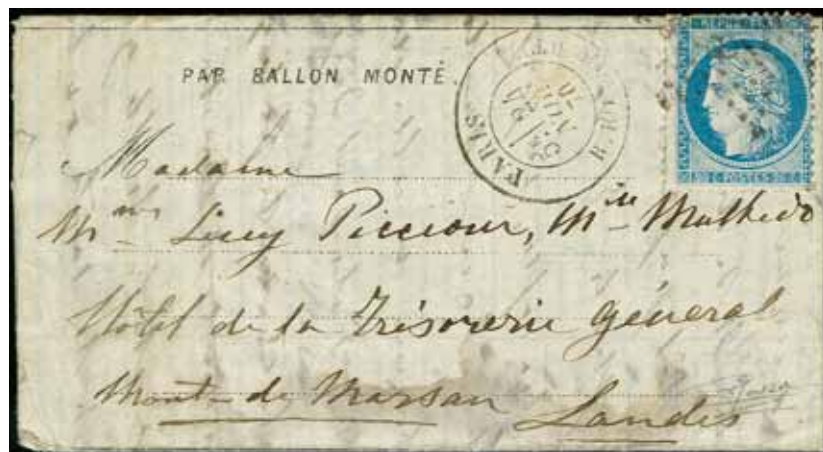 REPUB. FRANC.
PAR BALLON MONTÉ.
PARIS
Madame
Mme Lucy Piccioni, Mlle Mathedo
Hôtel de la Trésorerie général
Mont-de Marsan Landes